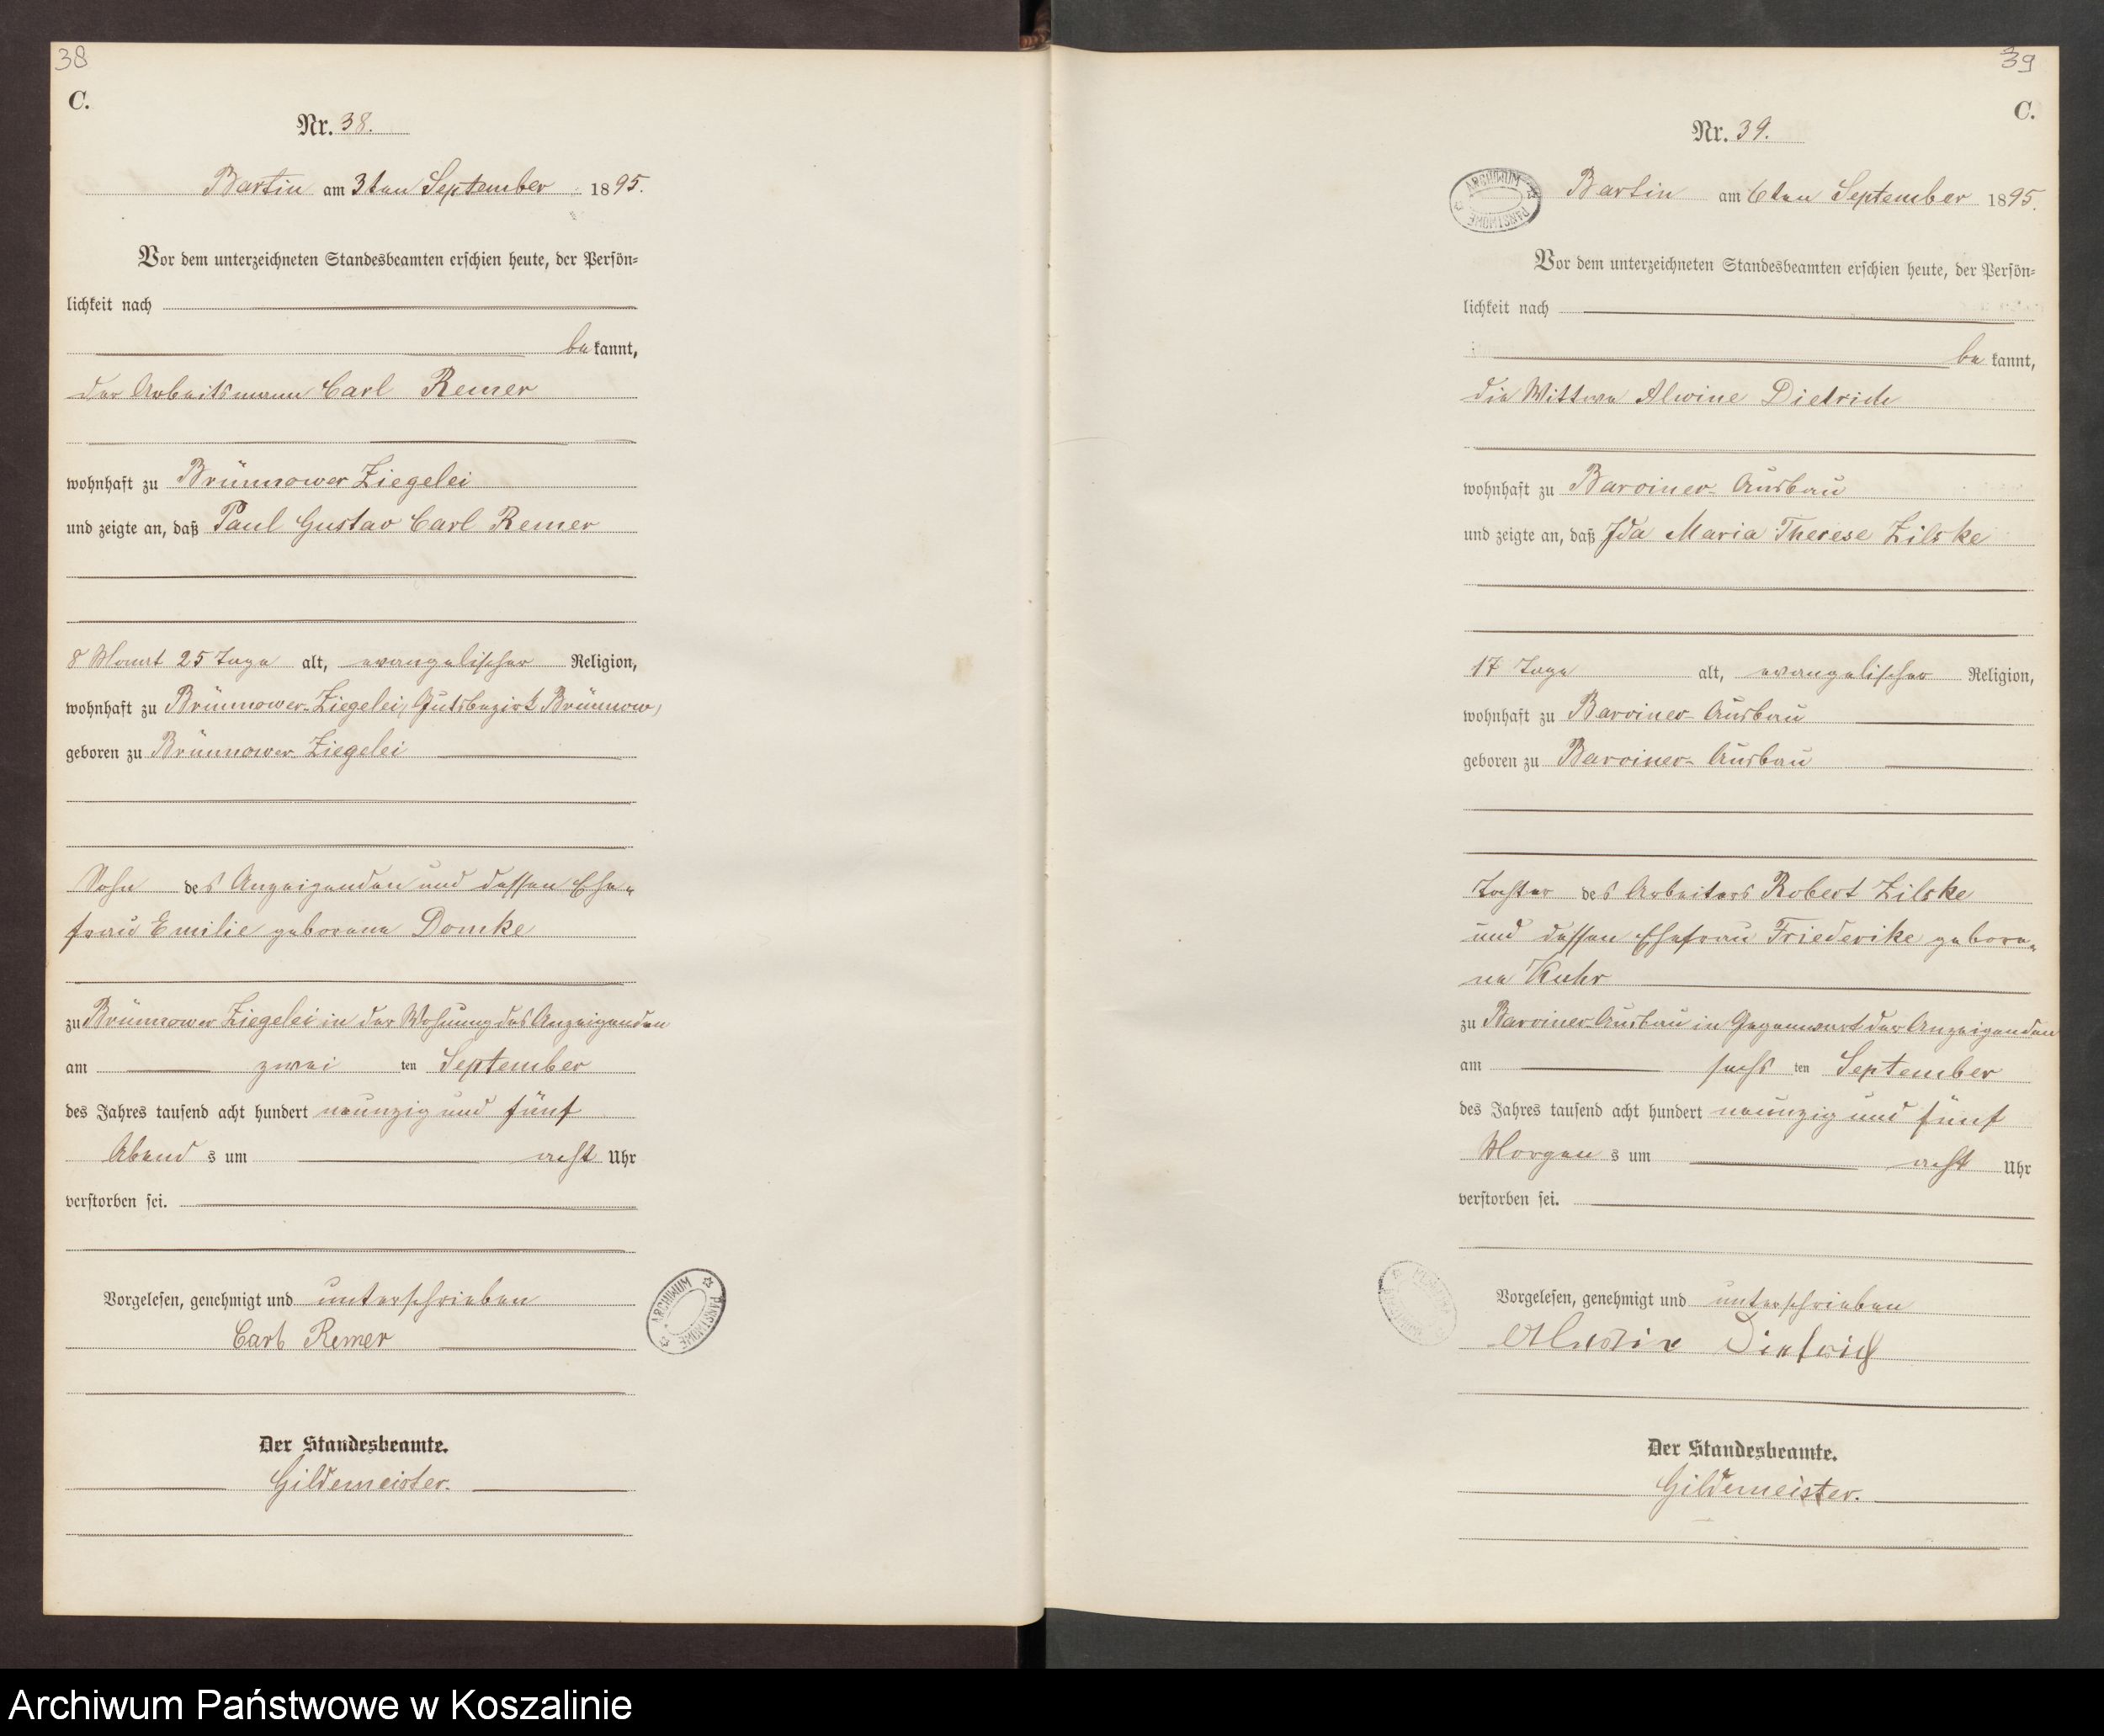 38
C.
Nr. 38.
Bartin am 3ten September 1895.
Vor dem unterzeichneten Standesbeamten erschien heute, der Persön-
lichkeit nach
bekannt,
der Arbeitsmann Carl Remer
wohnhaft zu Brünnower Ziegelei
und zeigte an, daß Paul Gustav Carl Remer
8 Monat 25 Tage alt, evangelischer Religion,
wohnhaft zu Brünnower-Ziegelei, Gutsbezirk Brünnow,
geboren zu Brünnower-Ziegelei
Sohn des Anzeigenden und dessen Ehe-
frau Emilie geborene Domke
zu Brünnower Ziegelei in der Wohnung des Anzeigenden
am zwei ten September
des Jahres tausend acht hundert neunzig und fünf
Abend s um acht Uhr
verstorben sei.
Vorgelesen, genehmigt und unterschrieben
Carl Remer
Der Standesbeamte.
Gildemeister.
ARCHIWUM PAŃSTWOWE
39
C.
Nr. 39.
Bartin am 6ten September 1895.
ARCHIWUM PAŃSTWOWE
Vor dem unterzeichneten Standesbeamten erschien heute, der Persön-
lichkeit nach
bekannt,
die Wittwe Alwine Dietrich
wohnhaft zu Barviner-Ausbau
und zeigte an, daß Ida Maria Therese Zilske
17 Tage alt, evangelischer Religion,
wohnhaft zu Barviner-Ausbau
geboren zu Barviner-Ausbau
Tochter des Arbeiters Robert Zilske
und dessen Ehefrau Friederike gebore-
ne Kuhr
zu Barviner-Ausbau in Gegenwart der Anzeigenden
am sechs ten September
des Jahres tausend acht hundert neunzig und fünf
Morgen s um acht Uhr
verstorben sei.
Vorgelesen, genehmigt und unterschrieben
Alwine Dietrich
Der Standesbeamte.
Gildemeister.
Archiwum Państwowe w Koszalinie